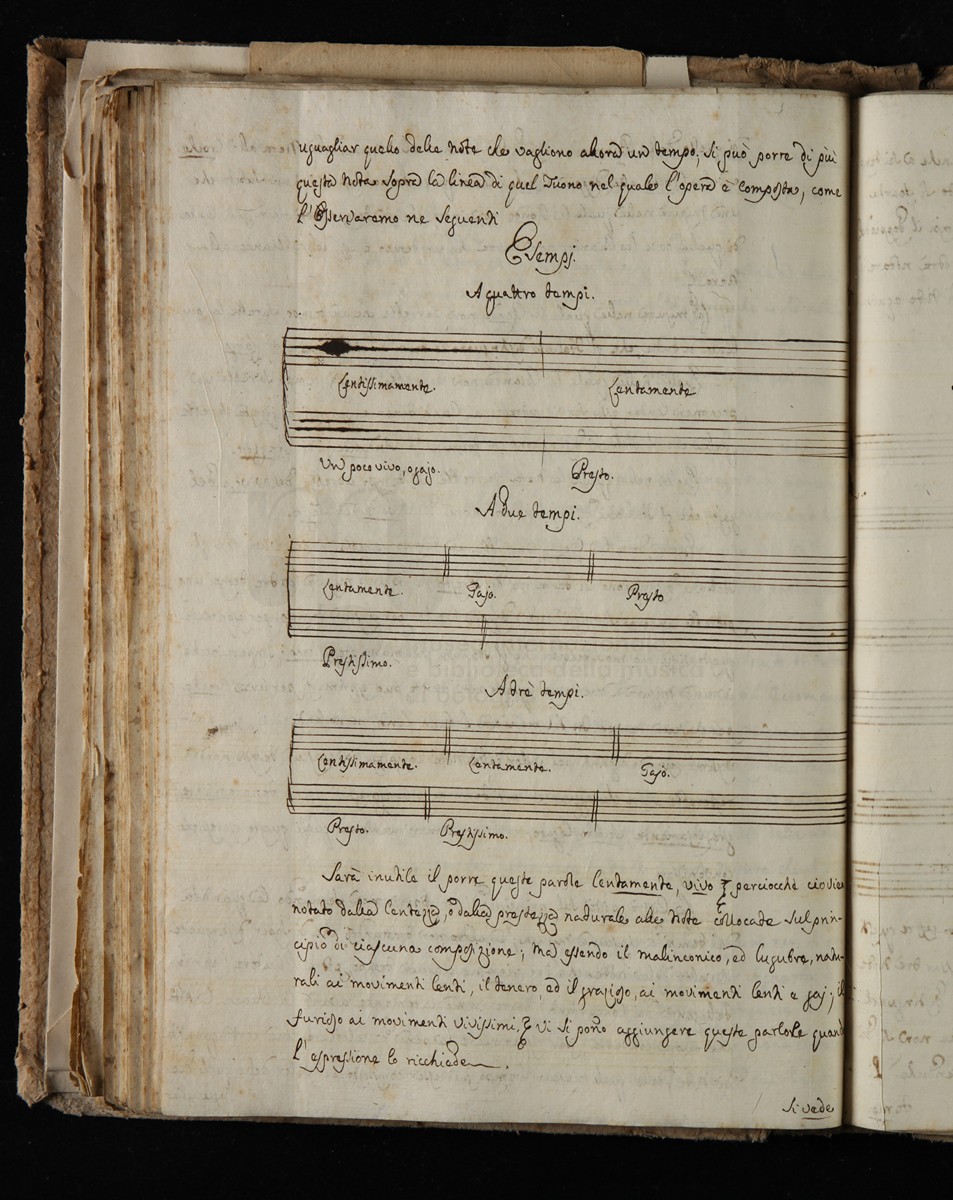 uguagliar quello delle Note che vagliono allora un tempo; si può porre di più
questa Nota sopra la linea di quel Tuono nel quale l'opera è composta, come
l'osservaremo ne seguenti
Esempj.
A quattro tempi.
Lentissimamente. Lentamente
Un poco vivo, o gajo. Presto.
A due tempi.
Lentamente. Gajo. Presto
Prestissimo.
A trè tempi.
Lentissimamente. Lentamente. Gajo.
Presto. Prestissimo.
Sarà inutile il porre queste parole lentamente, vivo perciocchè ciò vien
notato dalla lentezza, o dalla prestezza naturale alle Note collocate sul prin-
cipio di ciascuna composizione; ma essendo il malinconico, ed lugubre, natu-
rali ai movimenti lenti, il tenero, ed il grazioso, ai movimenti lenti e gaj; il
furioso ai movimenti vivissimi, vi si pono aggiungere queste parlole quand
l'espressione lo ricchiede.
si vede